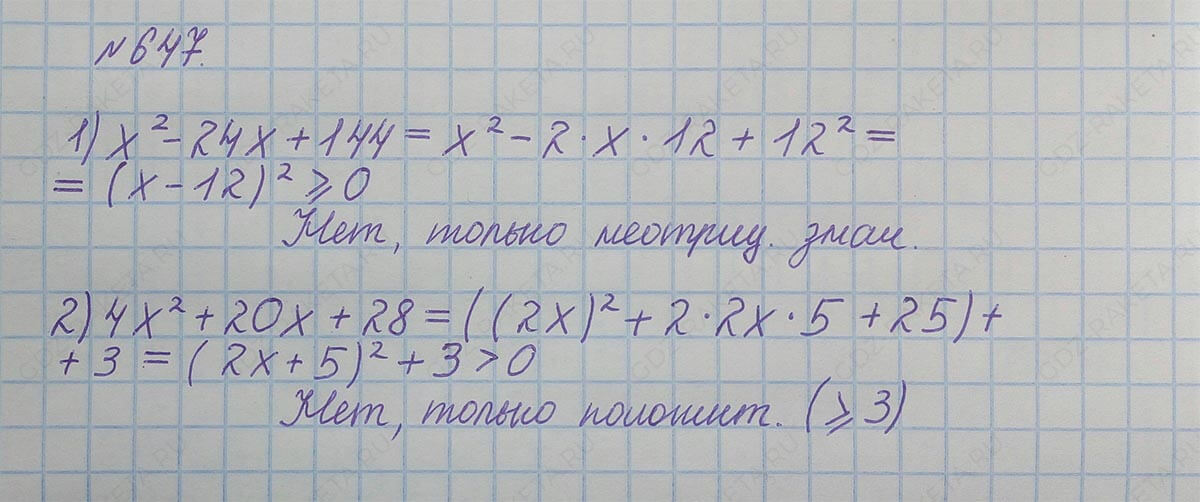 №647.
1) x² - 24x + 144 = x² - 2 · x · 12 + 12² =
= (x - 12)² ⩾ 0
Нет, только неотриц. знач.
2) 4x² + 20x + 28 = ((2x)² + 2 · 2x · 5 + 25) +
+ 3 = (2x + 5)² + 3 > 0
Нет, только положит. (⩾ 3)